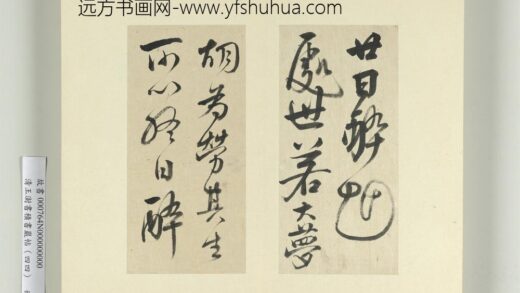 远方书画网-www.yfshuhua.com
廿日醉起
處世若大夢
胡為勞其生
所以終日醉
故書000764N000000000
清王澍書積書巖帖（四四）